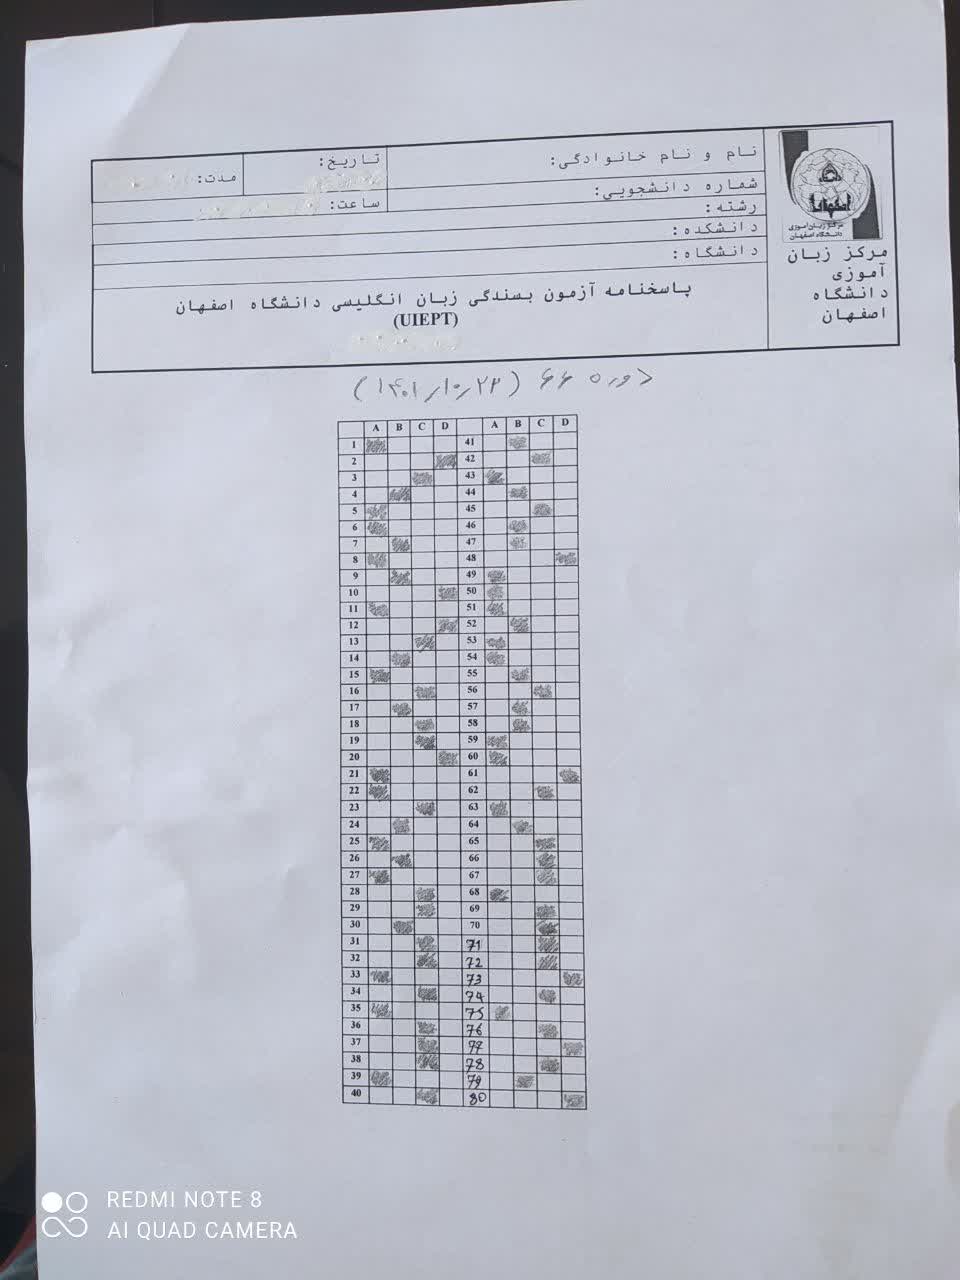 نام و نام خانوادگی:
تاریخ:
مدت:
شماره دانشجویی:
ساعت:
رشته:
دانشکده:
دانشگاه:
مرکز زبان آموزی
دانشگاه اصفهان
مرکز زبان
آموزی
دانشگاه
اصفهان
پاسخنامه آزمون بسندگی زبان انگلیسی دانشگاه اصفهان
(UIEPT)
دوره ۶۶ (۱۴۰۱/۱۰/۲۳)
A B C D A B C D
1 41
2 42
3 43
4 44
5 45
6 46
7 47
8 48
9 49
10 50
11 51
12 52
13 53
14 54
15 55
16 56
17 57
18 58
19 59
20 60
21 61
22 62
23 63
24 64
25 65
26 66
27 67
28 68
29 69
30 70
31 71
32 72
33 73
34 74
35 75
36 76
37 77
38 78
39 79
40 80
REDMI NOTE 8
AI QUAD CAMERA